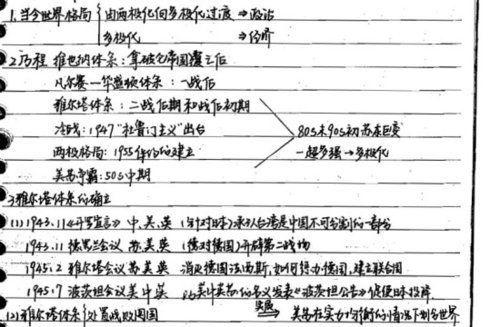 1.当今世界格局 { 由两极化向多极化过渡 ⇒ 政治
多极化 ⇒ 经济
2.历程 维也纳体系:拿破仑帝国覆亡后
凡尔赛—华盛顿体系:一战后
雅尔塔体系:二战后期和战后初期
冷战:1947"杜鲁门主义"出台
80s末90s初苏东巨变
两极格局:1955年华约的建立
一超多强→多极化
美苏争霸:50s中期
3.雅尔塔体系的确立
(1)1943.11《开罗宣言》中.美.英 (针对日本)承认台湾是中国不可分割的一部分
1943.11 德黑兰会议 苏.美.英 (德对德国)开辟第二战场
1945.2 雅尔塔会议 苏美英 消灭德国法西斯,如何惩办德国,建立联合国
1945.7 波茨坦会议 美中英 以美中英的名义发表《波茨坦公告》促使日本投降
(2)雅尔塔体系 { 处置战败国 实质⇒ 美苏在实力均衡的情况下划分世界